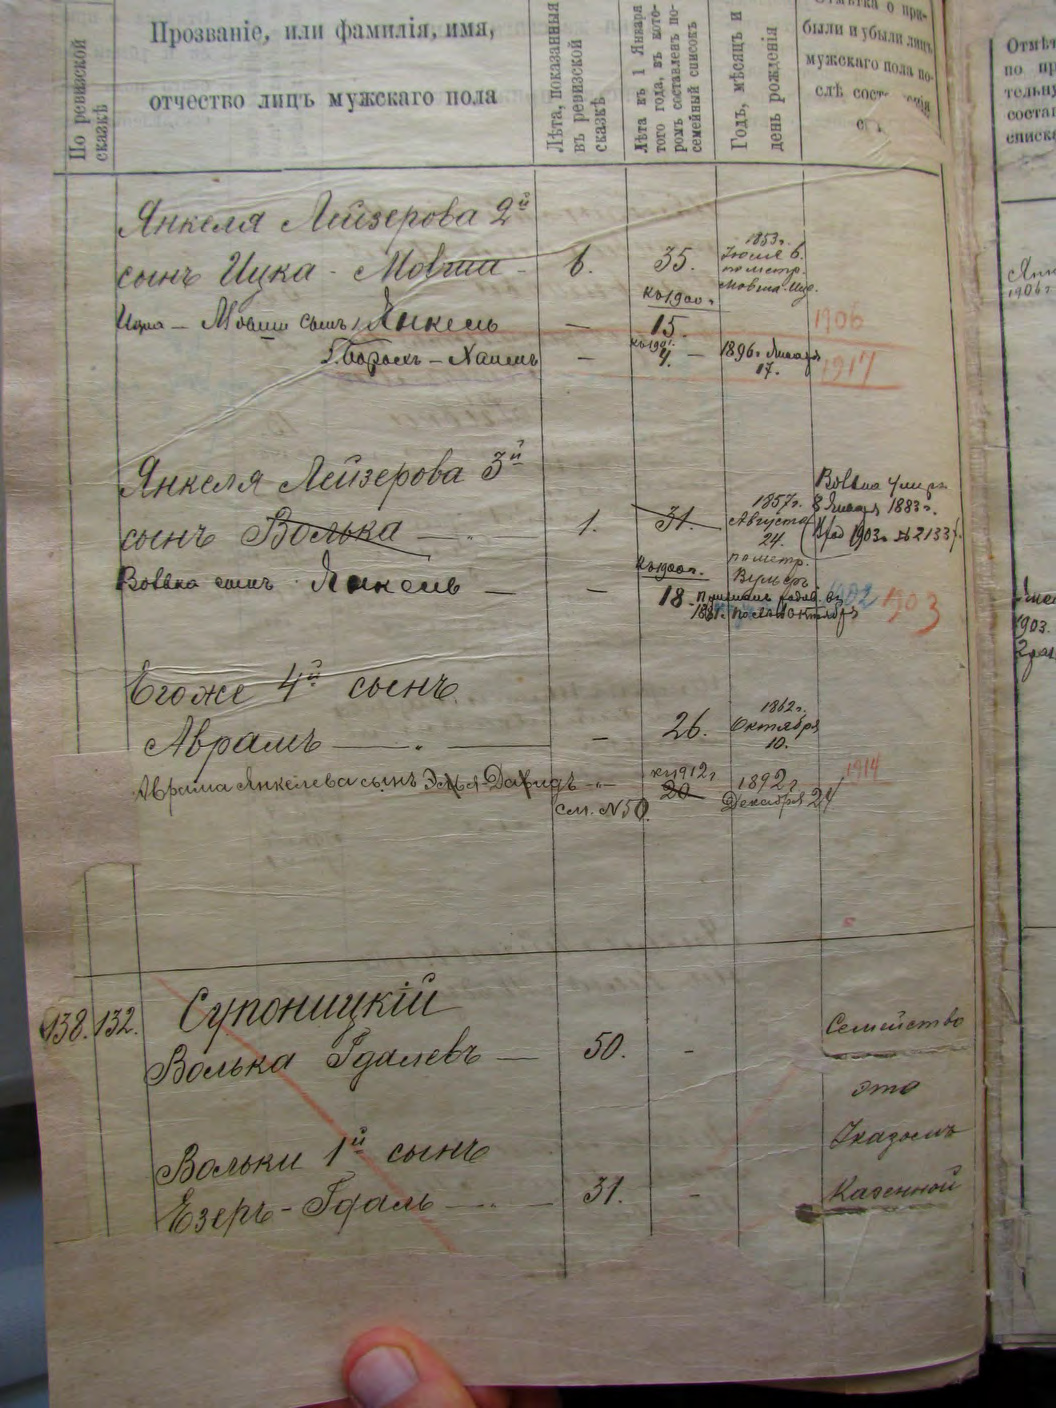 По ревизской сказкѣ
Прозваніе, или фамилія, имя,
отчество лицъ мужскаго пола
Лѣта, показанныя въ ревизской сказкѣ
Лѣта къ 1 Января того года, въ которомъ составленъ посемейный списокъ
Годъ, мѣсяцъ и день рожденія
были и убыли лицъ
мужскаго пола по-
Янкеля Лейзерова 2й
сынъ Ицка - Мовша - 6. 35.
1853г.
Іюля 6.
пометр.
Мовша-Ицр.
Ицка - Мовши сынъ Янкель - къ 1900 г. 15. 1906
Хаимъ - 4. - 1896г. Января 17. 1917
Янкеля Лейзерова 3й
сынъ Волька - 1. 31.
1857г.
Августа
24.
пометр.
Вовка умеръ
8 Января 1883г.
1903г. № 2133
Вовка сынъ Янкель - - къ 1900г. 18
1881г. 1902 1903
Егоже 4й сынъ
Аврамъ - - 26.
1862г.
Октября
10.
Аврама Янкелева сынъ Элья-Давидъ - къ 1912г 20
1892г
Декабря 24
1914
см. № 50.
138. 132. Супоницкій
Волька Гдалевъ - 50. -
Вольки 1й сынъ
Езеръ - Гдаль - 31. -
Семейство
это
Указомъ
Казенной
1903.